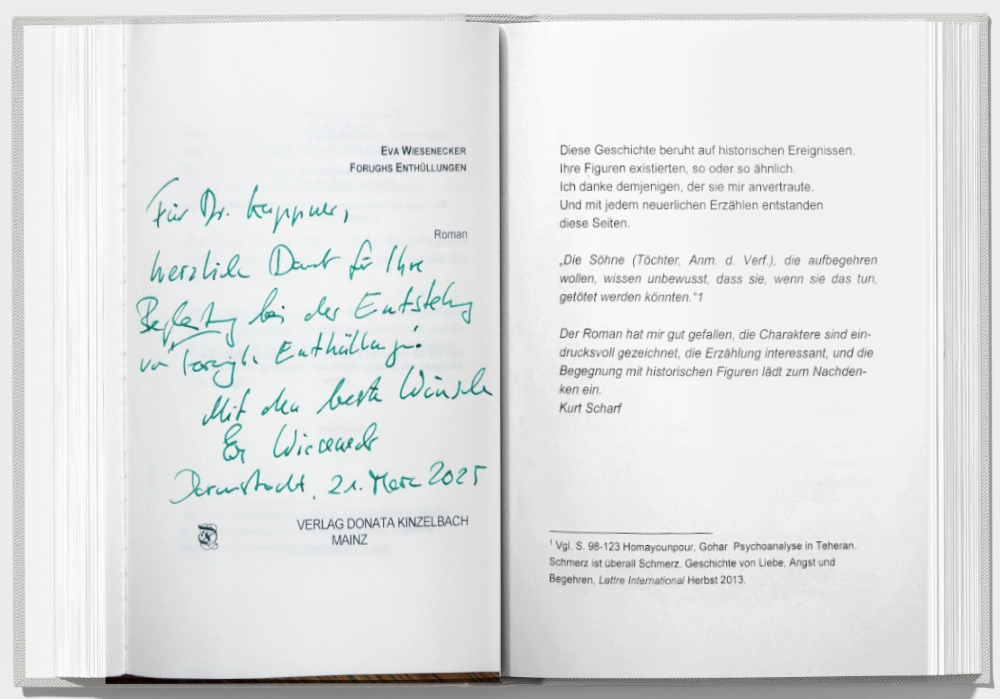 EVA WIESENECKER
FORUGHS ENTHÜLLUNGEN
Für Dr. Kuppner,
Roman
herzlichen Dank für Ihre
Begleitung bei der Entstehung
von Forughs Enthüllungen!
Mit den besten Wünschen
Eva Wiesenecker
Darmstadt, 21. März 2025
VERLAG DONATA KINZELBACH
MAINZ
Diese Geschichte beruht auf historischen Ereignissen.
Ihre Figuren existierten, so oder so ähnlich.
Ich danke demjenigen, der sie mir anvertraute.
Und mit jedem neuerlichen Erzählen entstanden
diese Seiten.
„Die Söhne (Töchter, Anm. d. Verf.), die aufbegehren
wollen, wissen unbewusst, dass sie, wenn sie das tun,
getötet werden könnten."1
Der Roman hat mir gut gefallen, die Charaktere sind ein-
drucksvoll gezeichnet, die Erzählung interessant, und die
Begegnung mit historischen Figuren lädt zum Nachden-
ken ein.
Kurt Scharf
1 Vgl. S. 98-123 Homayounpour, Gohar Psychoanalyse in Teheran.
Schmerz ist überall Schmerz. Geschichte von Liebe, Angst und
Begehren, Lettre International Herbst 2013.